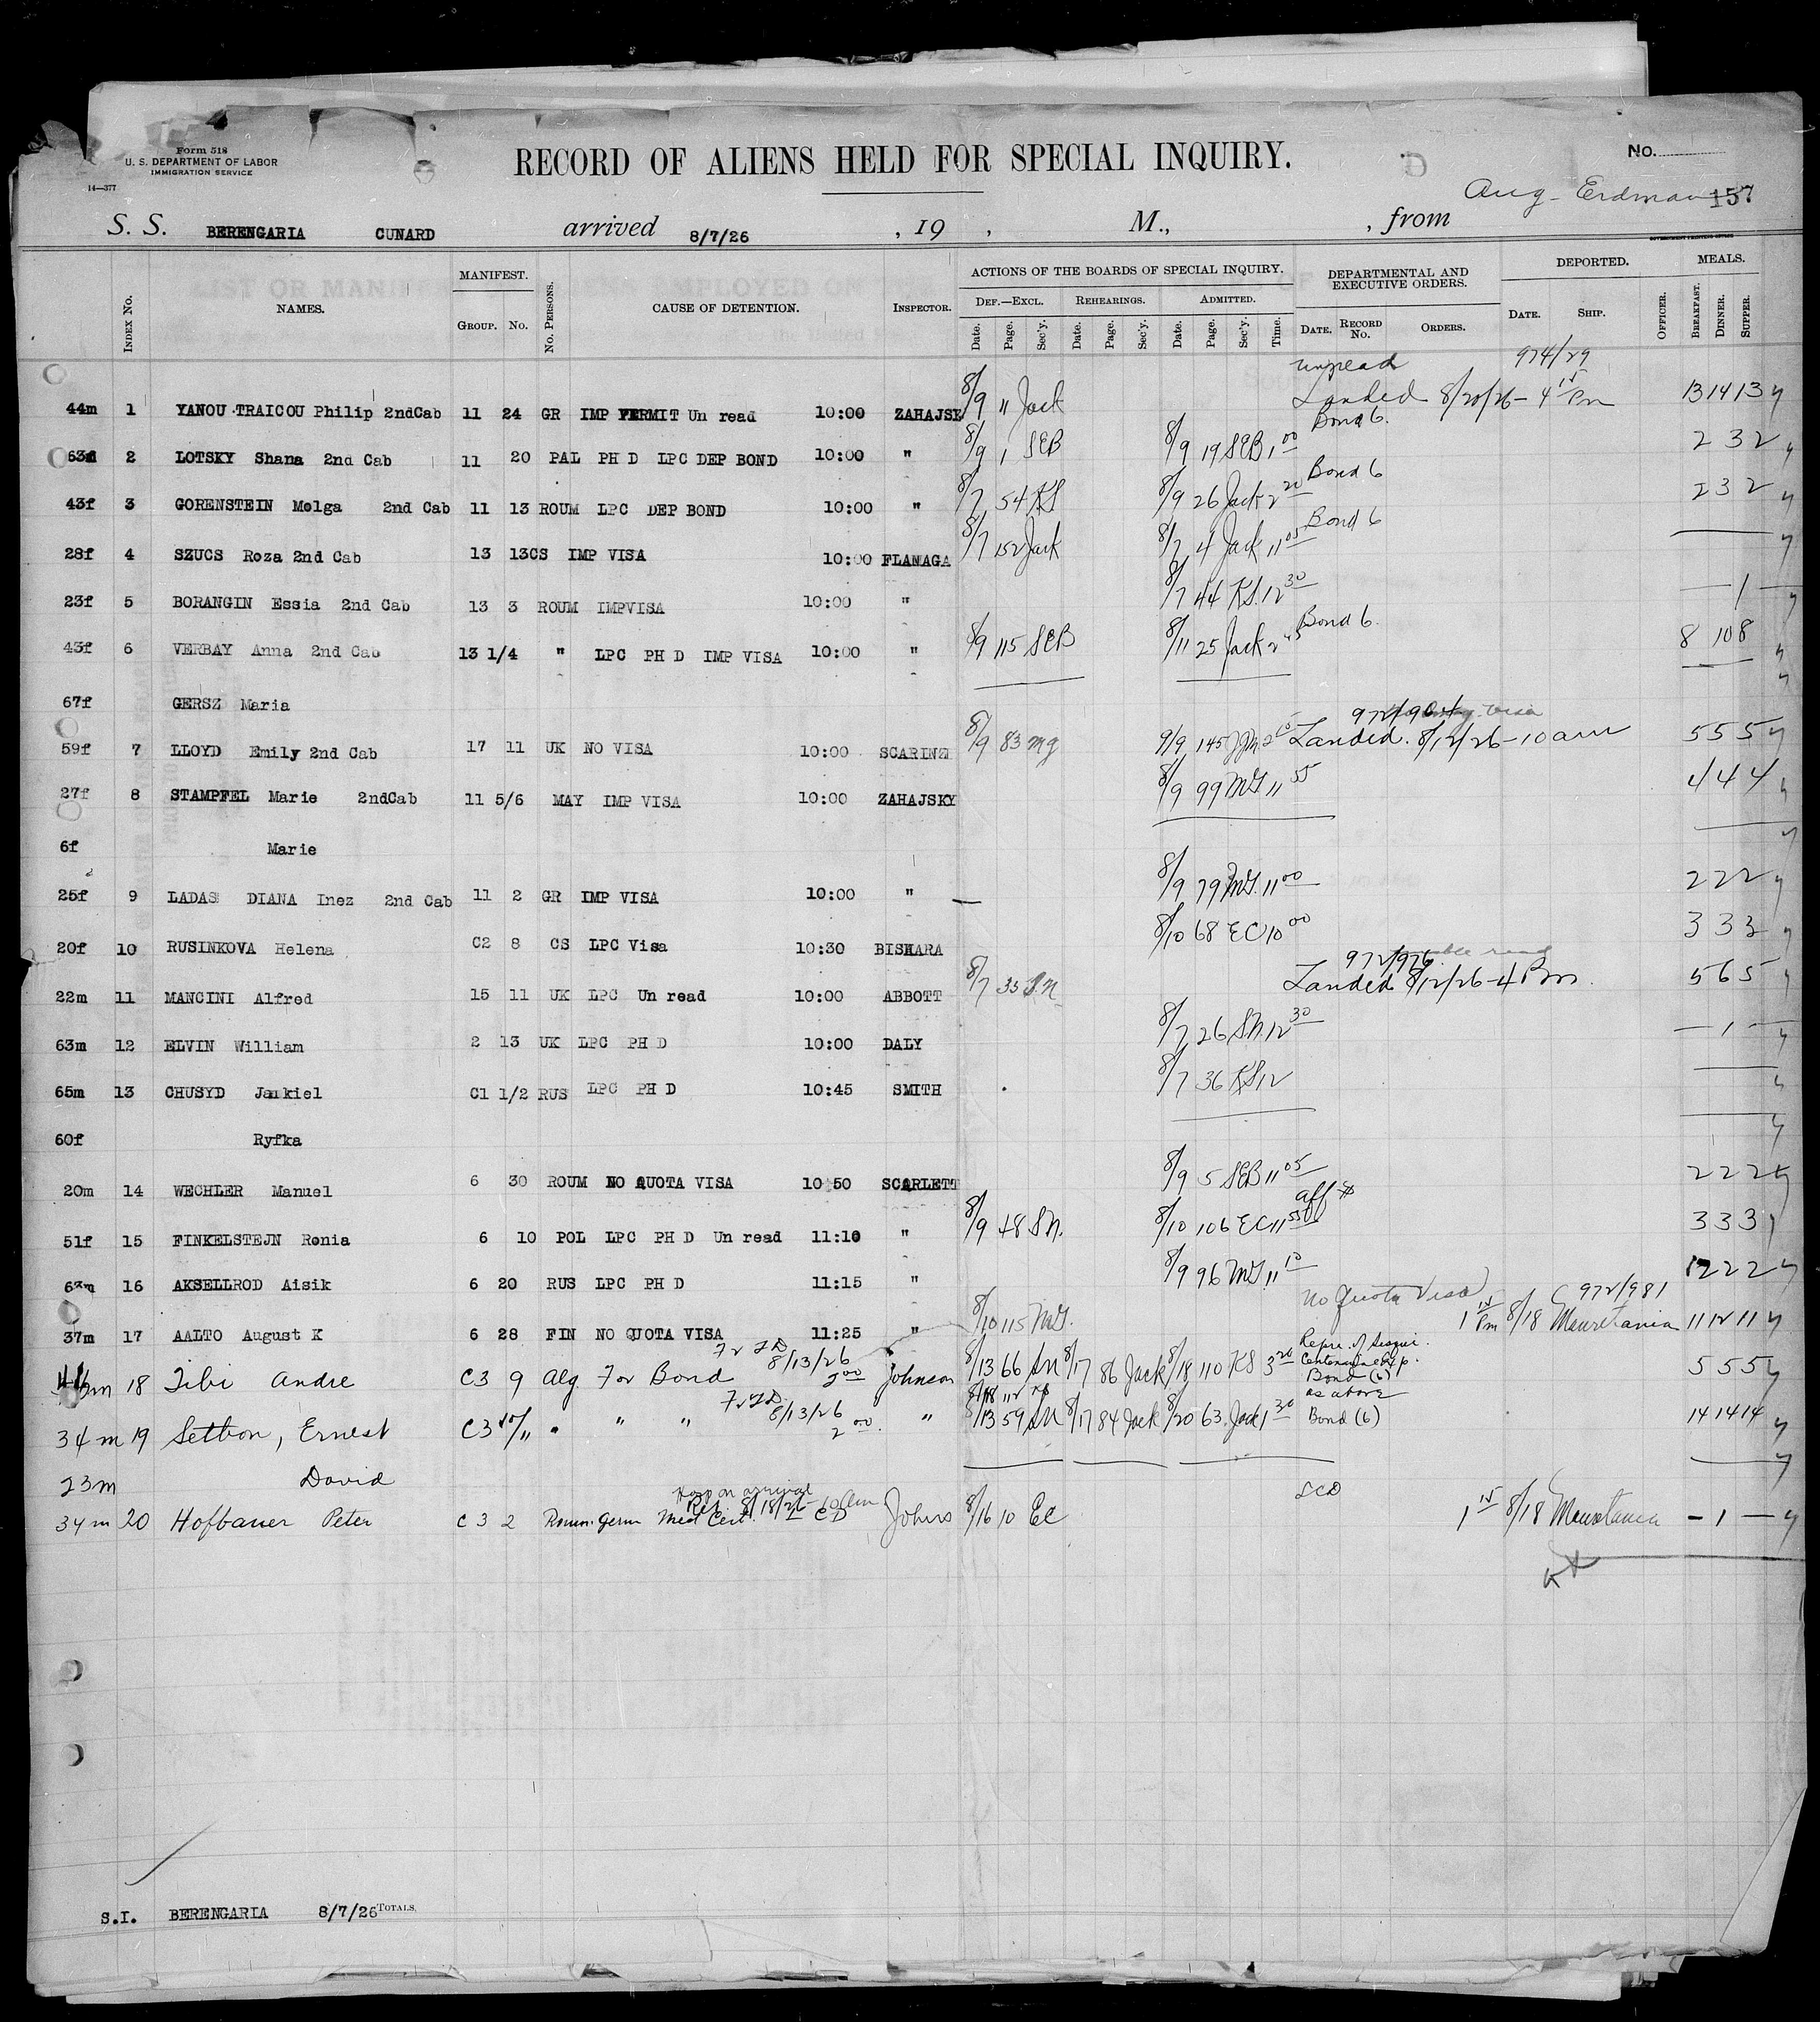 Form 518
U. S. DEPARTMENT OF LABOR
IMMIGRATION SERVICE
14—377
RECORD OF ALIENS HELD FOR SPECIAL INQUIRY.
No.
Aug - Erdman 157
S. S. BERENGARIA CUNARD arrived 8/7/26 , 19 , M., , from
GOVERNMENT PRINTING OFFICE
MANIFEST. ACTIONS OF THE BOARDS OF SPECIAL INQUIRY. DEPARTMENTAL AND EXECUTIVE ORDERS. DEPORTED. MEALS.
INDEX No. NAMES. GROUP. No. No. PERSONS. CAUSE OF DETENTION. INSPECTOR. DEF.—EXCL. REHEARINGS. ADMITTED.
Date. Page. Sec'y. Date. Page. Sec'y. Date. Page. Sec'y. Time. DATE. RECORD No. ORDERS. DATE. SHIP. OFFICER. BREAKFAST. DINNER. SUPPER.
unread 974/29
44m 1 YANOU TRAICOU Philip 2ndCab 11 24 GR IMP PERMIT Un read 10:00 ZAHAJSK 8/9 11 Jack Landed 8/20/26 - 4 15 Pm 13 14 13
63m 2 LOTSKY Shana 2nd Cab 11 20 PAL PH D LPC DEP BOND 10:00 " 8/9 1 SEB 8/9 19 SEB 1 00 Bond 6. 2 3 2
43f 3 GORENSTEIN Molga 2nd Cab 11 13 ROUM LPC DEP BOND 10:00 " 8/7 54 KS 8/9 26 Jack 2 20 Bond 6 2 3 2
28f 4 SZUCS Roza 2nd Cab 13 13 CS IMP VISA 10:00 FLAMAGA 8/7 152 Jack 8/7 4 Jack 11 05 Bond 6
23f 5 BORANGIN Essia 2nd Cab 13 3 ROUM IMPVISA 10:00 " 8/7 44 KS. 12 30 — 1 —
43f 6 VERBAY Anna 2nd Cab 13 1/4 " LPC PH D IMP VISA 10:00 " 8/9 115 SEB 8/11 25 Jack 2 45 Bond 6. 8 10 8
67f GERSZ Maria
59f 7 LLOYD Emily 2nd Cab 17 11 UK NO VISA 10:00 SCARINZI 8/9 83 mg 9/9 145 Landed 8/12/26 - 10 am 5 5 5
27f 8 STAMPFEL Marie 2ndCab 11 5/6 MAY IMP VISA 10:00 ZAHAJSKY 8/9 99 MG 11 55 4 4 4
6f Marie
25f 9 LADAS DIANA Inez 2nd Cab 11 2 GR IMP VISA 10:00 " 8/9 79 MG. 11 00 2 2 2
20f 10 RUSINKOVA Helena C2 8 CS LPC Visa 10:30 BISHARA 8/10 68 EC 10 00 3 3 3
972/976
22m 11 MANCINI Alfred 15 11 UK LPC Un read 10:00 ABBOTT 8/7 35 S.N. Landed 8/12/26 - 4 Pm. 5 6 5
63m 12 ELVIN William 2 13 UK LPC PH D 10:00 DALY 8/7 26 SN. 12 30 — 1 —
65m 13 CHUSYD Jankiel C1 1/2 RUS LPC PH D 10:45 SMITH 8/7 36 KS 12
60f Ryfka
20m 14 WECHLER Manuel 6 30 ROUM NO QUOTA VISA 10 50 SCARLETT 8/9 5 SEB 11 05 2 2 2
51f 15 FINKELSTEJN Ronia 6 10 POL LPC PH D Un read 11:10 " 8/9 48 SN. 8/10 106 EC 11 55 aff 3 3 3
63m 16 AKSELLROD Aisik 6 20 RUS LPC PH D 11:15 " 8/9 96 MG 11 10 2 2 2
no Quota Visa 972/981
37m 17 AALTO August K 6 28 FIN NO QUOTA VISA 11:25 " 8/10 115 MG. 1 15 Pm 8/18 Mauretania 11 12 11
8/13/26 Repre. of Sesqui. Centennial Exp.
18 Tibi Andre C3 9 Alg. For Bond 2 00 Johnson 8/13 66 SN 8/17 86 Jack 8/18 110 KS 3 20 Bond (6) 5 5 5
8/13/26 as above
34 m 19 Setbon, Ernest C3 10/11 " " " 2 00. " 8/13 59 SN 8/17 84 Jack 8/20 63 Jack 1 30 Bond (6) 14 14 14
23m David
Hosp on arrival LCD
34 m 20 Hofbauer Peter C 3 2 Roum. Germ Med Cert. Rel. 8/18/26 Johns 8/16 10 EC 1 15 8/18 Mauretania — 1 —
S.I. BERENGARIA 8/7/26 TOTALS,